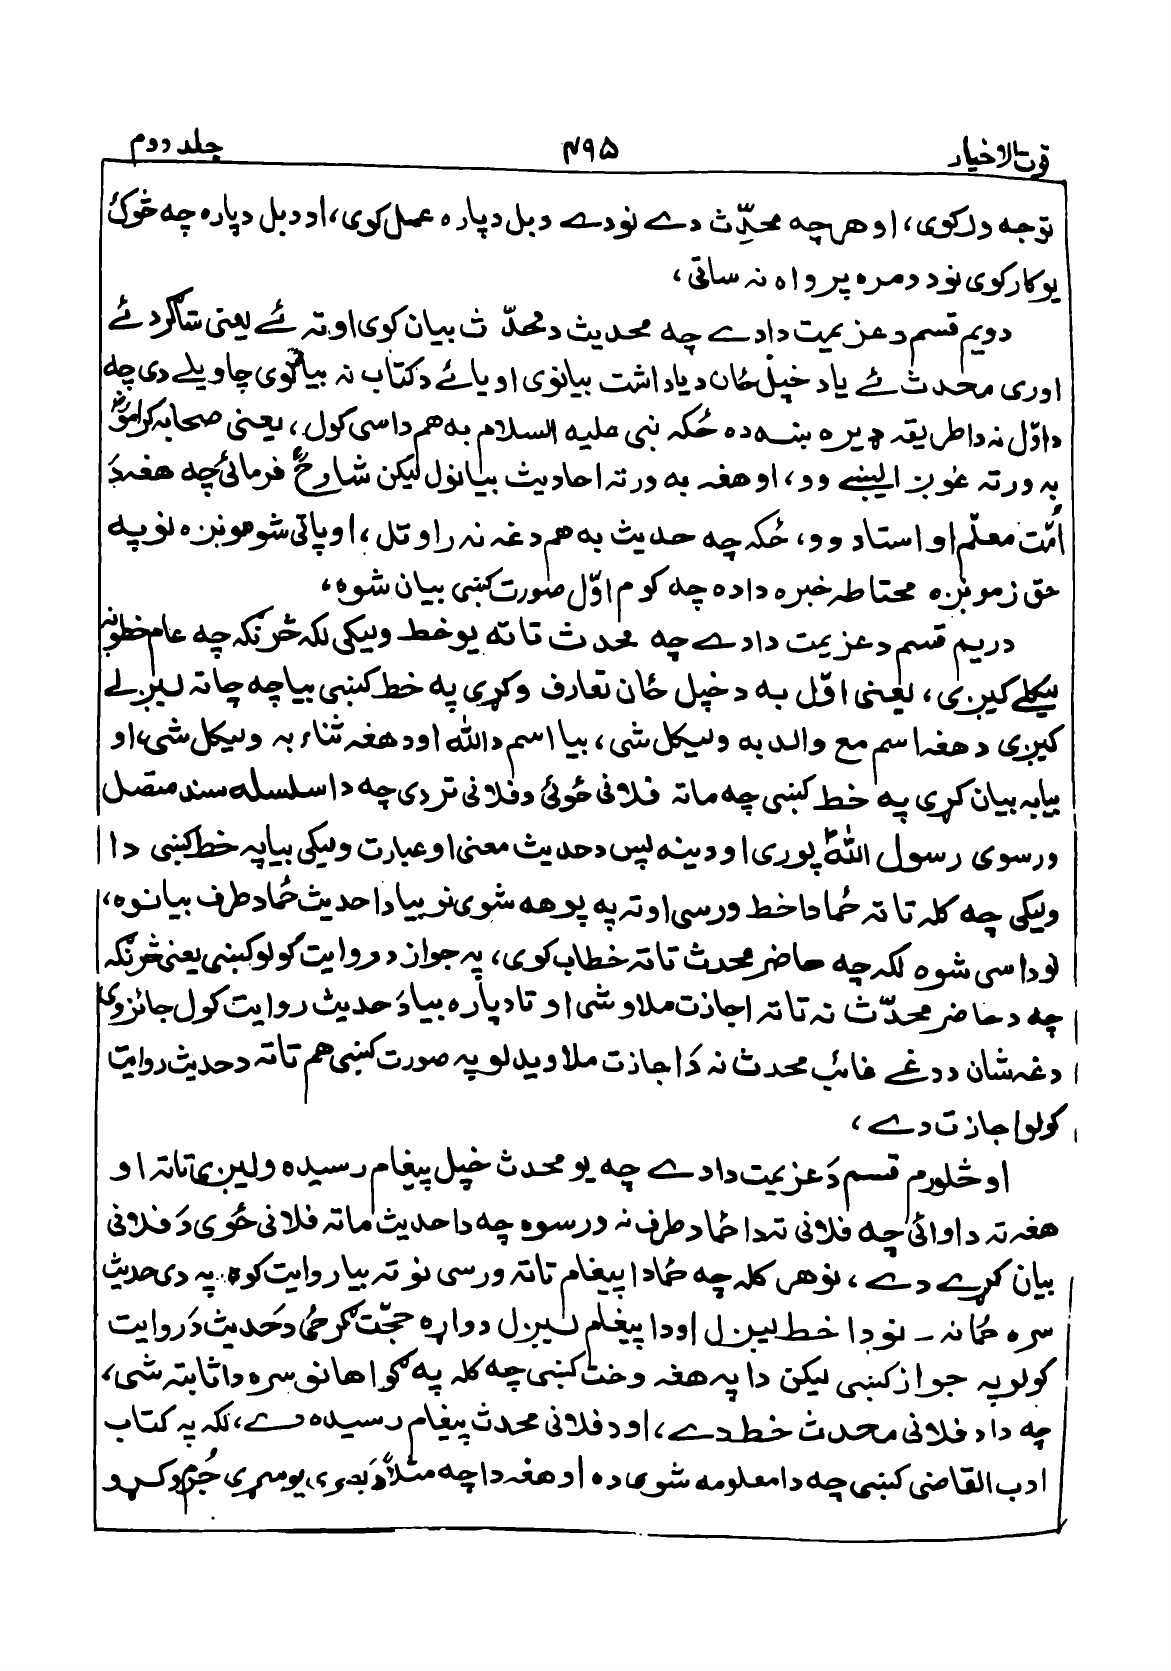 قوت الاخیار ۴۹۵ جلد دوم
توجه ورکوی، اوهرچه محدِّث دے نودے دبل دپاره عمل کوی، اودبل دپاره چه څوک
یوکارکوی نود دمره پرواه نه ساتی،
دویم قسم دعزیمت دادے چه محدیث دمحدّث بیان کوی اوته ئے یعنی شاگرد ئے
اوری محدث ئے یاد خپل ځان دیاداشت بیانوی اویائے دکتاب نه بیانوی چاویلے دی چه
داوّل نه داطریقه ډیره ښه ده ځکه نبی علیه السلام به هم داسی کول، یعنی صحابه کرامؓ
به ورته غوږ ایښے وو، اوهغه به ورته احادیث بیانول لیکن شارحؒ فرمائی چه هغه دَ
اُمّت معلّم او استاد وو، ځکه چه حدیث به هم دغه نه راوتل، اوپاتی شو مونږه نوپه
حق زمونږه محتاطه خبره داده چه کوم اوّل صورت کښی بیان شوه،
دریم قسم دعزیمت دادے چه محدث تاته یوخط ولیکی لکه څرنګه چه عام خطونه
لیکلے کیږی، یعنی اوّل به دخپل ځان تعارف وکړی په خط کښی بیاچه چاته لیږلے
کیږی دهغه اسم مع والد به ولیکل شی، بیا اسم دالله اودهغه ثناء به ولیکل شی، او
بیابه بیان کړی په خط کښی چه ماته فلانی ځوئ دفلانی تردی چه داسلسله سند متصل
ورسوی رسول اللهؐ پوری اودینه پس دحدیث معنی اوعبارت ولیکی بیاپه خط کښی دا
ولیکی چه کله تاته ځما داخط ورسی اوته په پوهه شوی نوبیا داحدیث ځما دطرف بیانوه،
نوداسی شوه لکه چه حاضر محدث تاته خطاب کوی، په جواز دروایت کولوکښی یعنی څرنګه
چه دحاضر محدّث نه تاته اجازت ملاوشی اوتادپاره بیا دَحدیث روایت کول جائزوی
دغه شان ددغے غائب محدث نه دَاجازت ملاویدلو په صورت کښی هم تاته دحدیث روایت
کولو اجازت دے،
اوڅلورم قسم دَعزیمت دادے چه یو محدث خپل پیغام رسیده ولیږی تاته او
هغه ته داوائی چه فلانی ته دا ځما دطرف نه ورسوه چه داحدیث ماته فلانی ځوی دَفلانی
بیان کړے دے، نوهر کله چه ځما دا پیغام تاته ورسی نوته بیا روایت کوه په دی حدیث
سره ځمانه ـ نودا خط لیږل اودا پیغام لیږل دواړه حجّت ګرځی دحَدیث دَروایت
کولو په جواز کښی لیکن دا په هغه وخت کښی چه کله په ګواهانو سره داثابته شی،
چه داد فلانی محدث خط دے، اود فلانی محدث پیغام رسیده دے، لکه په کتاب
ادب القاضی کښی چه دامعلومه شوی ده اوهغه داچه مثلاً دَبصری یو سړی جُرم وکړو